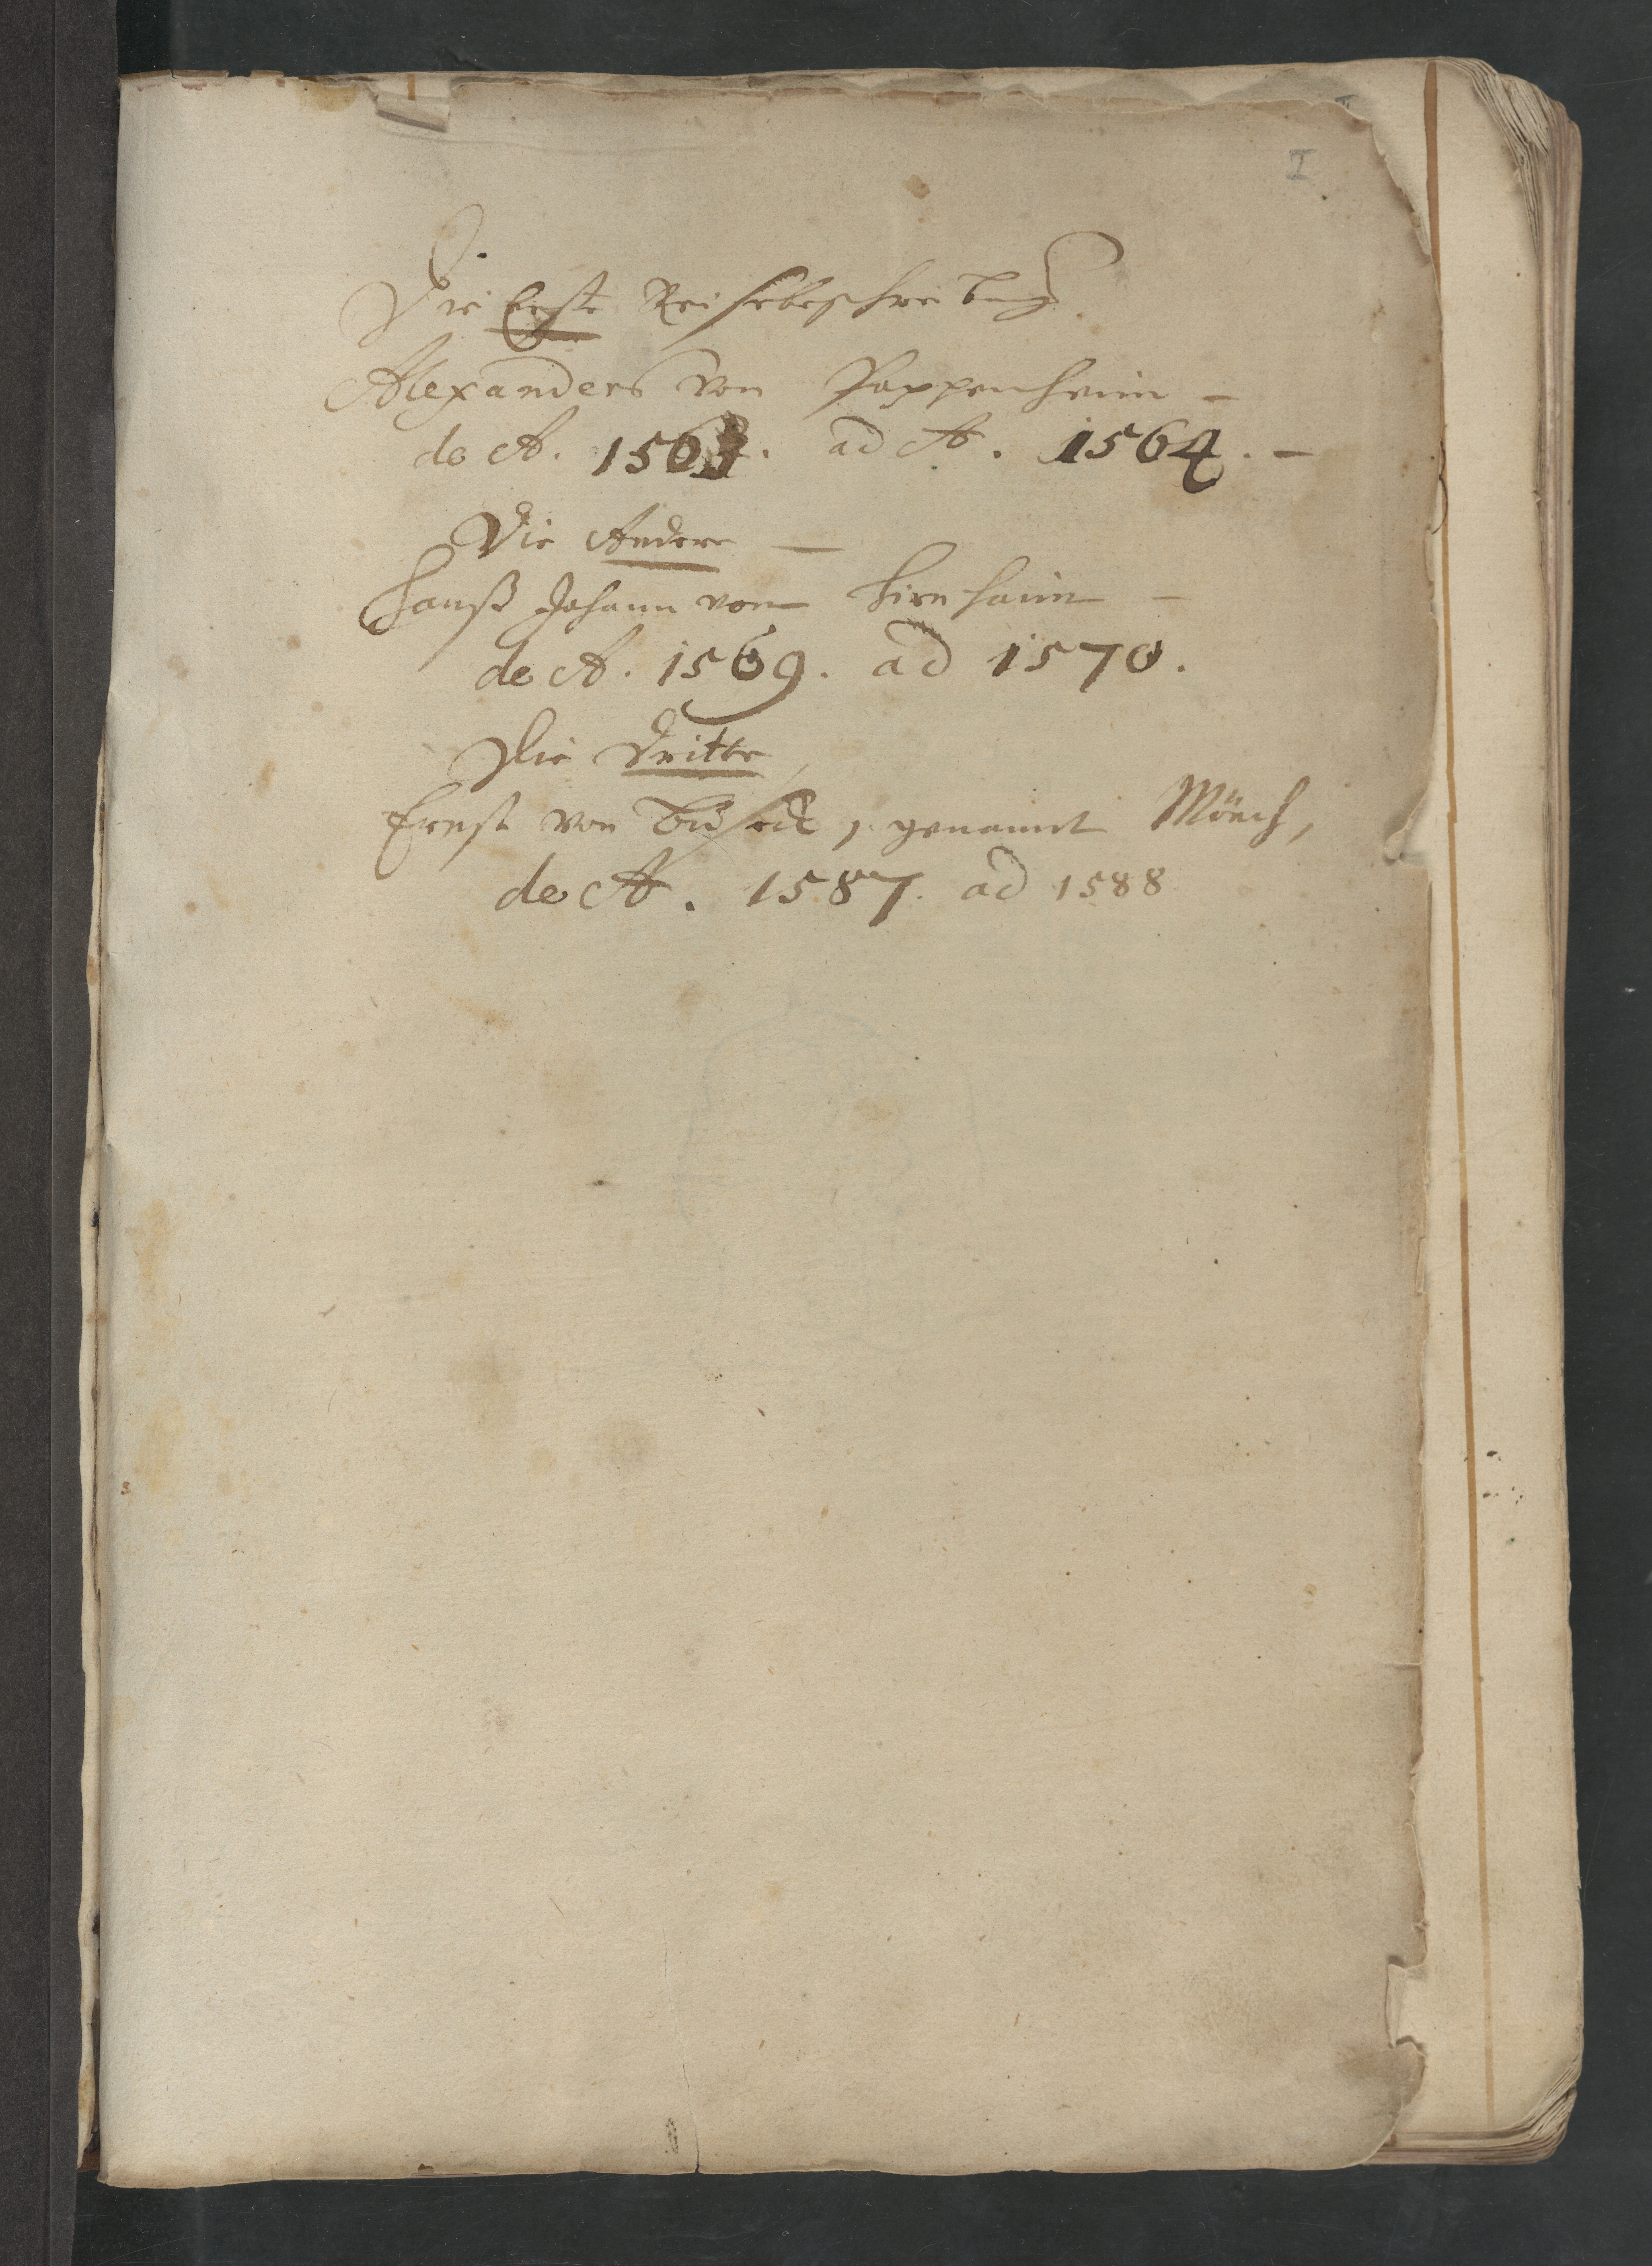 I
Die Erste Reisebeschreibung
Alexanders von Pappenheim -
de A. 1563. ad A. 1564. -
Die Andere -
Hanß Johann von Hirnhaim -
de A. 1569. ad 1570.
Die Dritte,
Ernst von Buseck, genannt Mönch,
de A. 1587. ad 1588